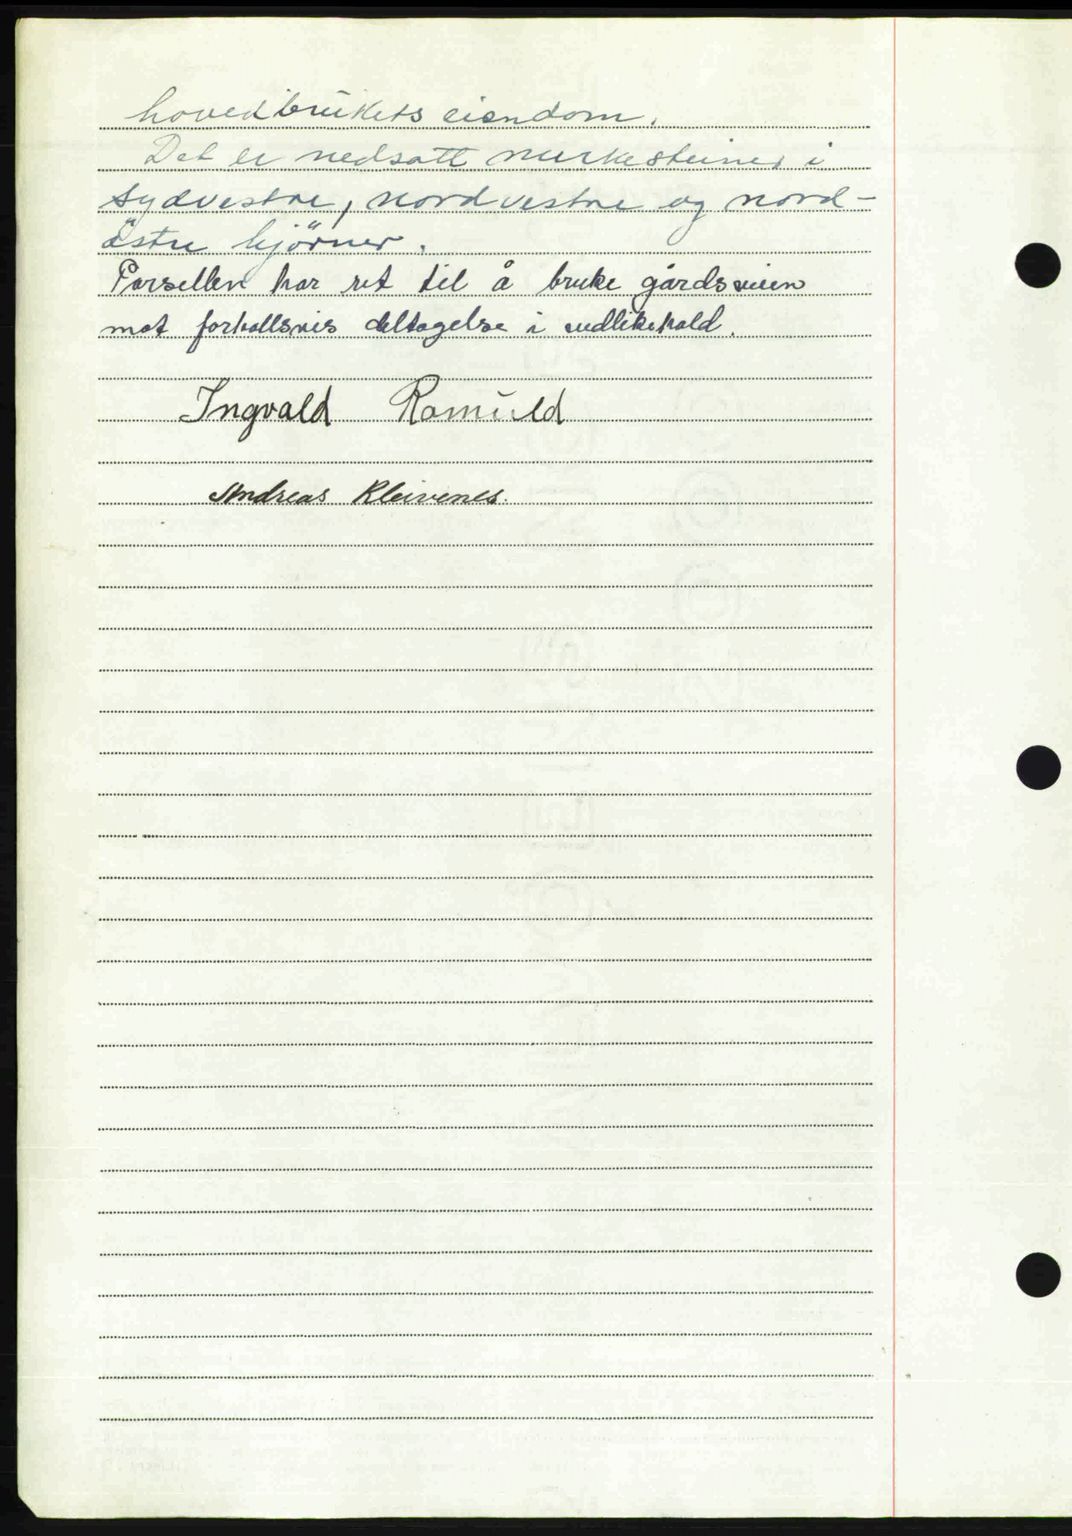 hovedbrukets eiendom.
Det er nedsatt merkesteiner i
sydvestre, nordvestre og nord-
östre hjörner.
Parsellen har ret til å bruke gårdsveien
mot forholsvis deltagelse i vedlikehold.
Ingvald Ramuld
Andreas Kleivenes.